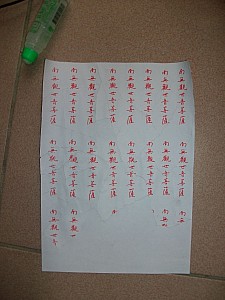 南无觀世音菩薩南无觀世音菩薩南无
南无觀世音菩薩南无觀世音菩薩南无
南无觀世音菩薩南无觀世音菩薩
南无觀世音菩薩南无觀世音菩薩
南无觀世音菩薩南无觀世音菩薩
南无觀世音菩薩南无觀世音菩薩
南无觀世音菩薩南无觀世音菩薩南无觀世
南无觀世音菩薩南无觀世音菩薩南无觀世音